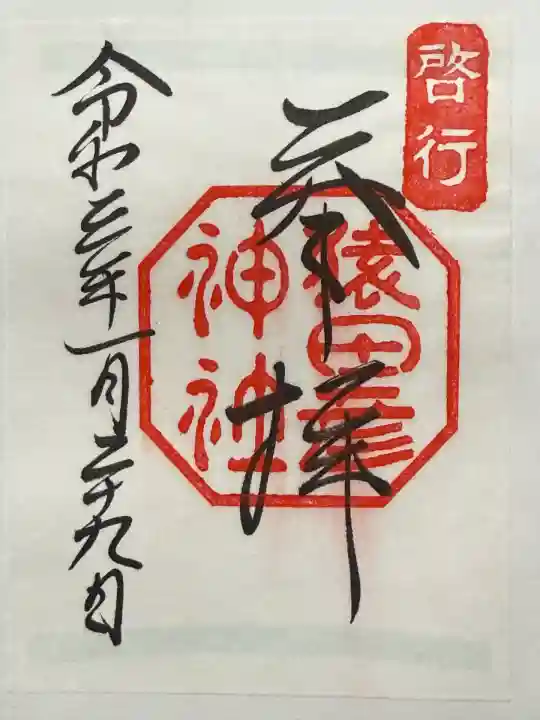 啓行
奉拝
猿田彦
神社
令和三年一月二十九日